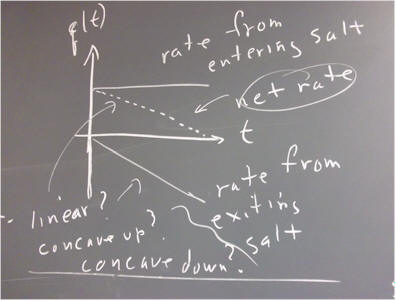 q(t)
rate from
entering salt
net rate
t
rate from
exiting
salt
linear?
concave up?
concave down?